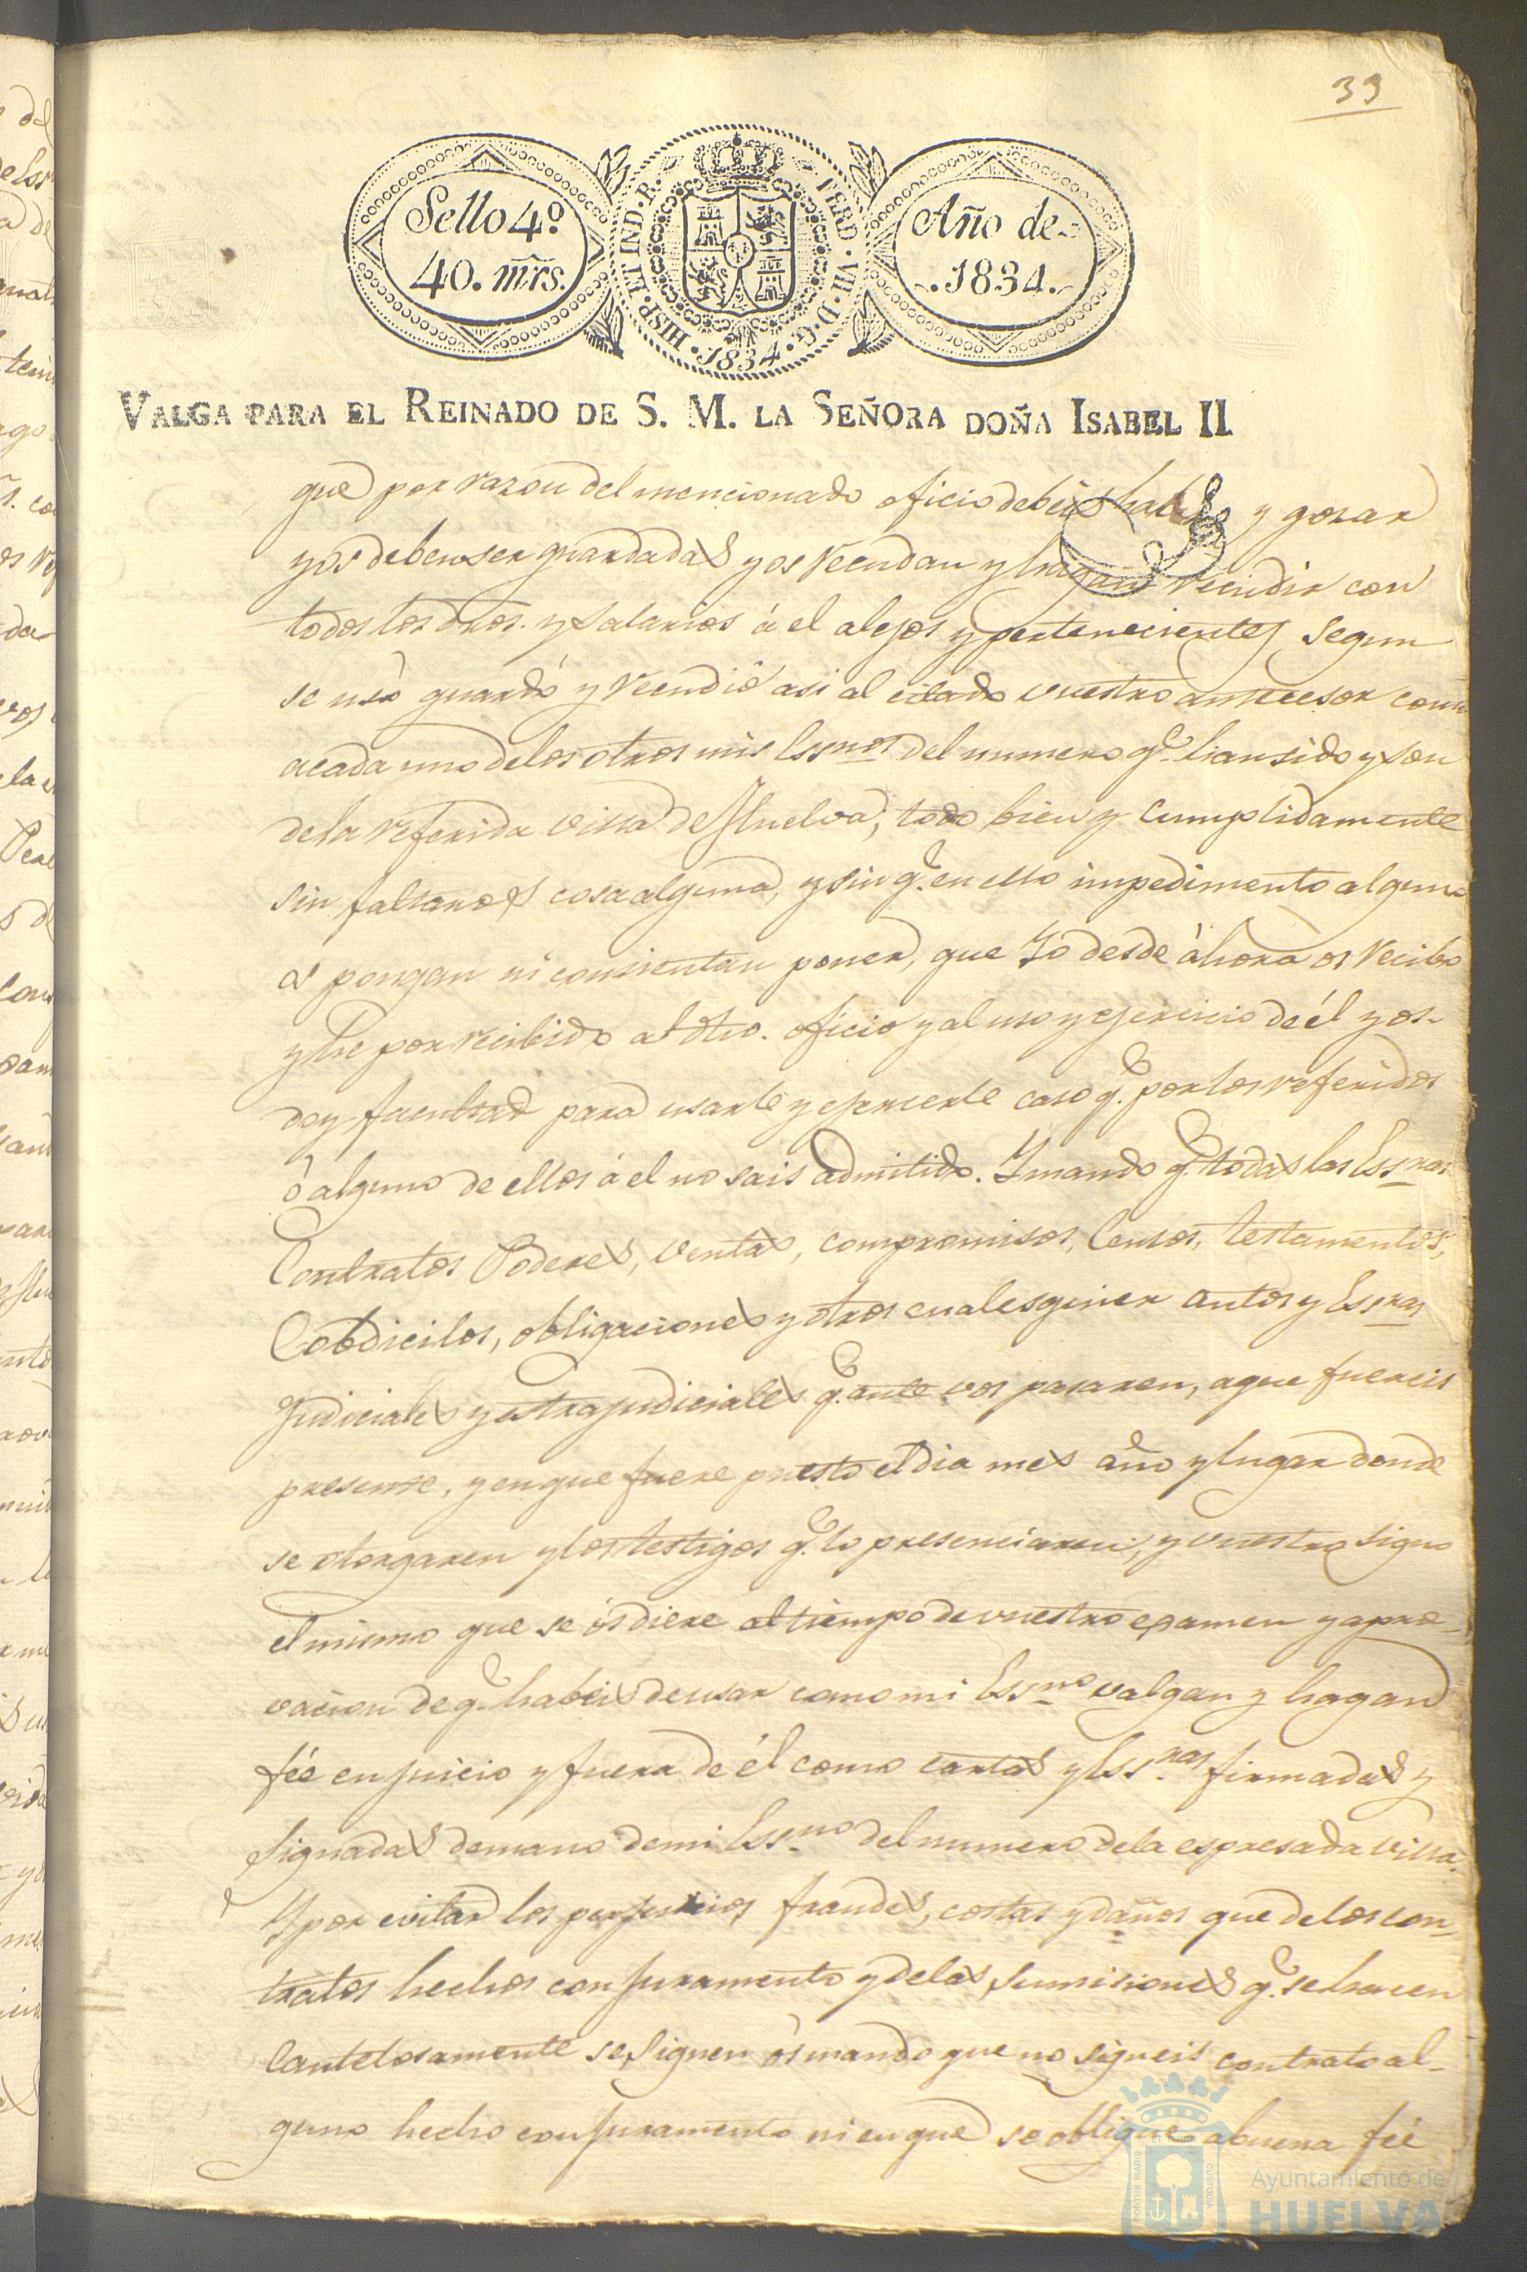 39
Sello 4º
40. mrs.
HISP. ET IND. R.
FERD. VII. D. G.
1834
Año de
1834.
VALGA PARA EL REINADO DE S. M. LA SEÑORA DOÑA ISABEL II
que por razon del mencionado oficio debeis haber y gozar
y os deben ser guardadas y os recudan y hagan recudir con
todos los dros. y salarios á el alejos y pertenecientes, segun
se usó guardó y recudió asi al citado vuestro antecesor como
acada uno delos otros mis Essnos del numero q.e han sido y son
dela referida villa de Huelva, todo bien y Cumplidamente
sin faltaros cosa alguna, y sin q.e en ello impedimento alguno
os pongan ni consientan poner, que Yo desde áhora os recibo
y he por recibido al dho. oficio y al uso y ejercicio de él y os
doy facultad para usarle y ejercerle caso q.e por los referidos
ó alguno de ellos á el no sais admitido. Y mando q.e todas las Essras
Contratos Poderes, ventas, compromisos, Censos, testamentos,
Cobdicilos, obligaciones y otros cualesquier autos y Essras
Judiciales y extrajudiciales q.e ante vos pasaren, a que fuereis
presente, y en que fuere puesto el dia mes año y lugar donde
se otorgaren y los testigos q.e lo presenciaren, y vuestro signo
el mismo que se ós diere al tiempo de vuestro examen y apro-
vacion de q.e habeis de usar como mi Essno valgan y hagan
fée en juicio y fuera de él como cartas y Essras firmadas y
signadas demano demi Essno del numero dela espresada villa.
Y por evitar los perjuicios fraudes, costas y daños que delos con-
tratos hechos con juramento y delas sumisiones q.e se hacen
Cautelosamente se siguen ós mando que no signeis contrato al-
guno hecho con juramento ni en que se obligue abuena fée
PORTUS MARIS
CUSTODIA
Ayuntamiento de
HUELVA